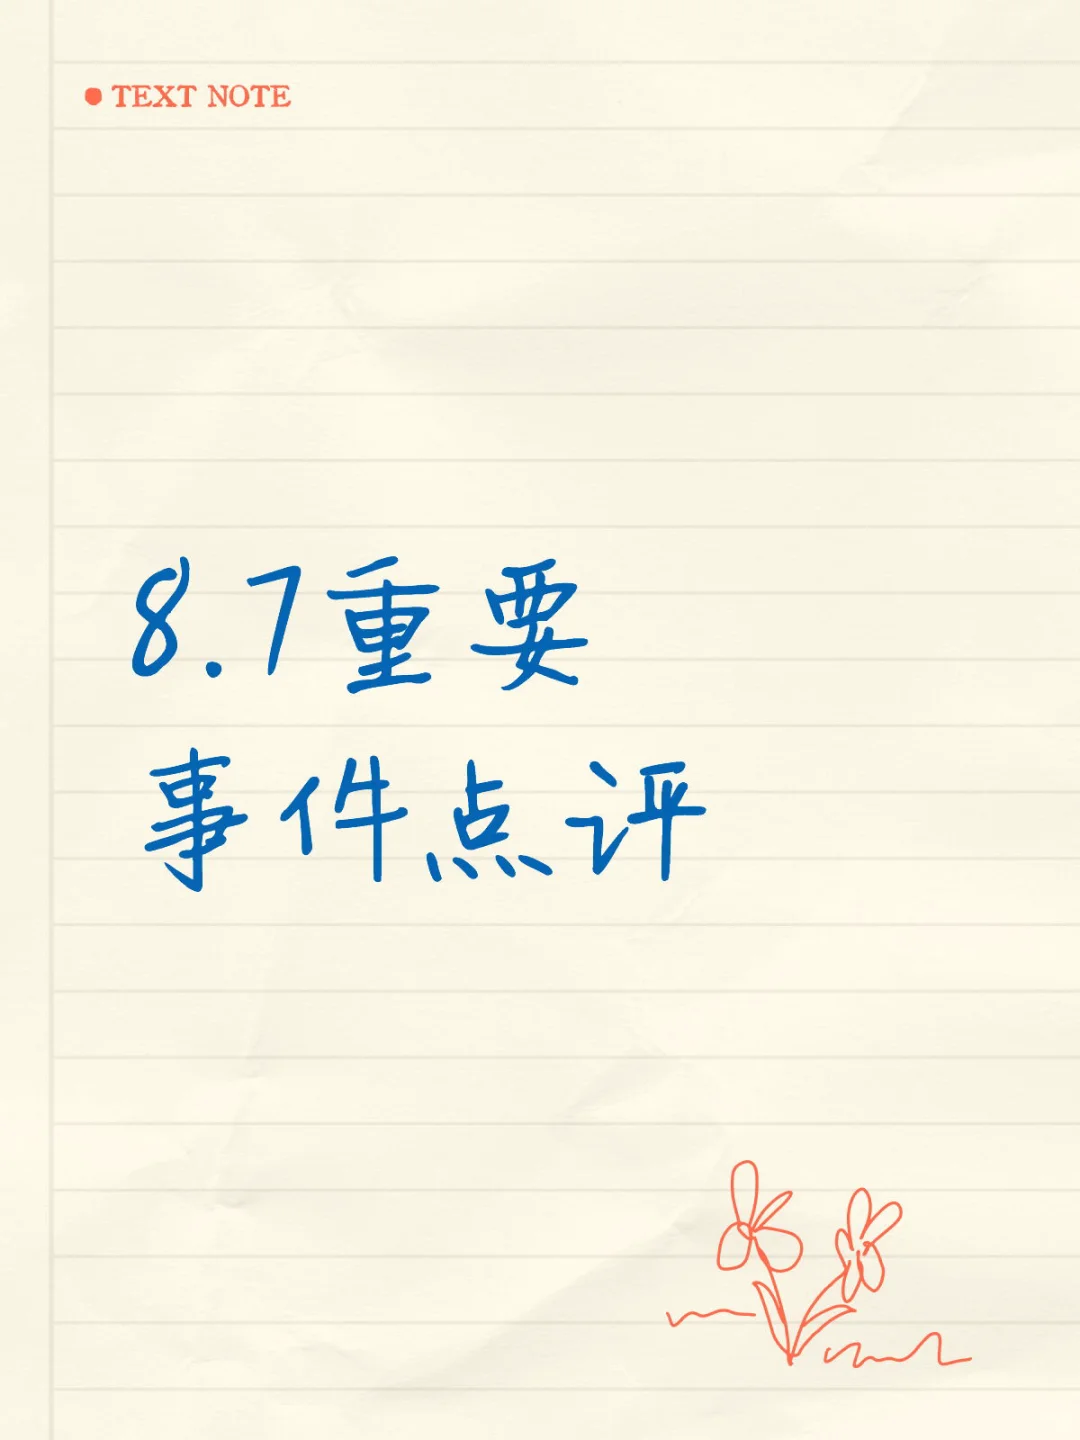 TEXT NOTE
8.7重要
事件点评